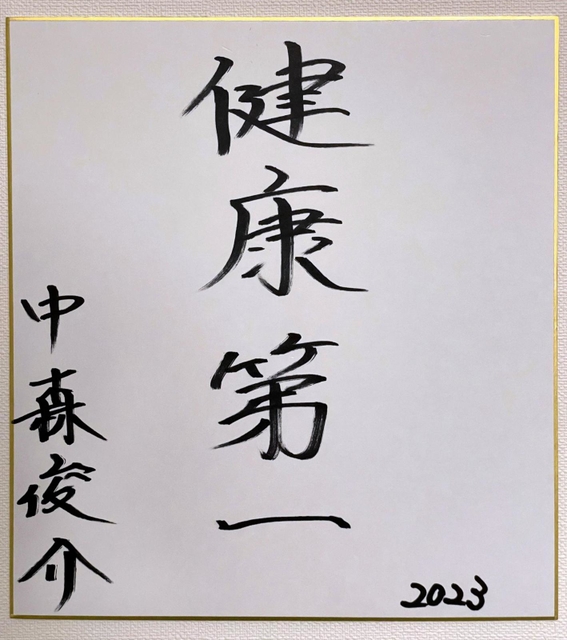 健康第一
中森俊介
2023